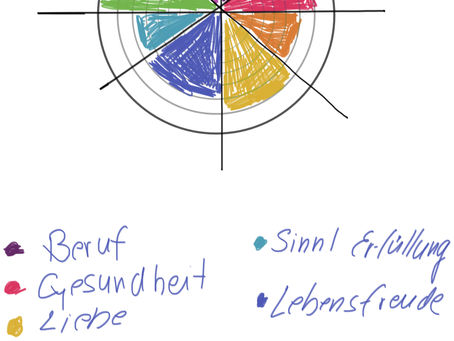 Beruf
Gesundheit
Liebe
Sinn/ Erfüllung
Lebensfreude